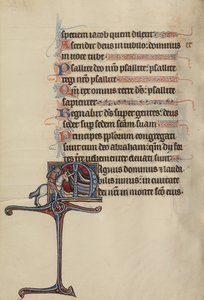 speciem iacob quem dilexit.
Ascendit deus in iubilo: dominus
in uoce tube.
Psallite deo nr̄o psallite: psallite
regi nr̄o psallite.
Qm̄ rex omnis terre ds̄: psallite
sapienter.
Regnabit ds̄ super gentes: deus
sedet sup sedem sc̄am suam.
Principes pp̄lorum congregati
sunt cum deo abraham: qm̄ dij for
tes terre uehementer eleuati sunt.
Magnus dominus ⁊ lauda
bilis nimis: in ciuitate
dei nr̄i in monte sc̄o eius.